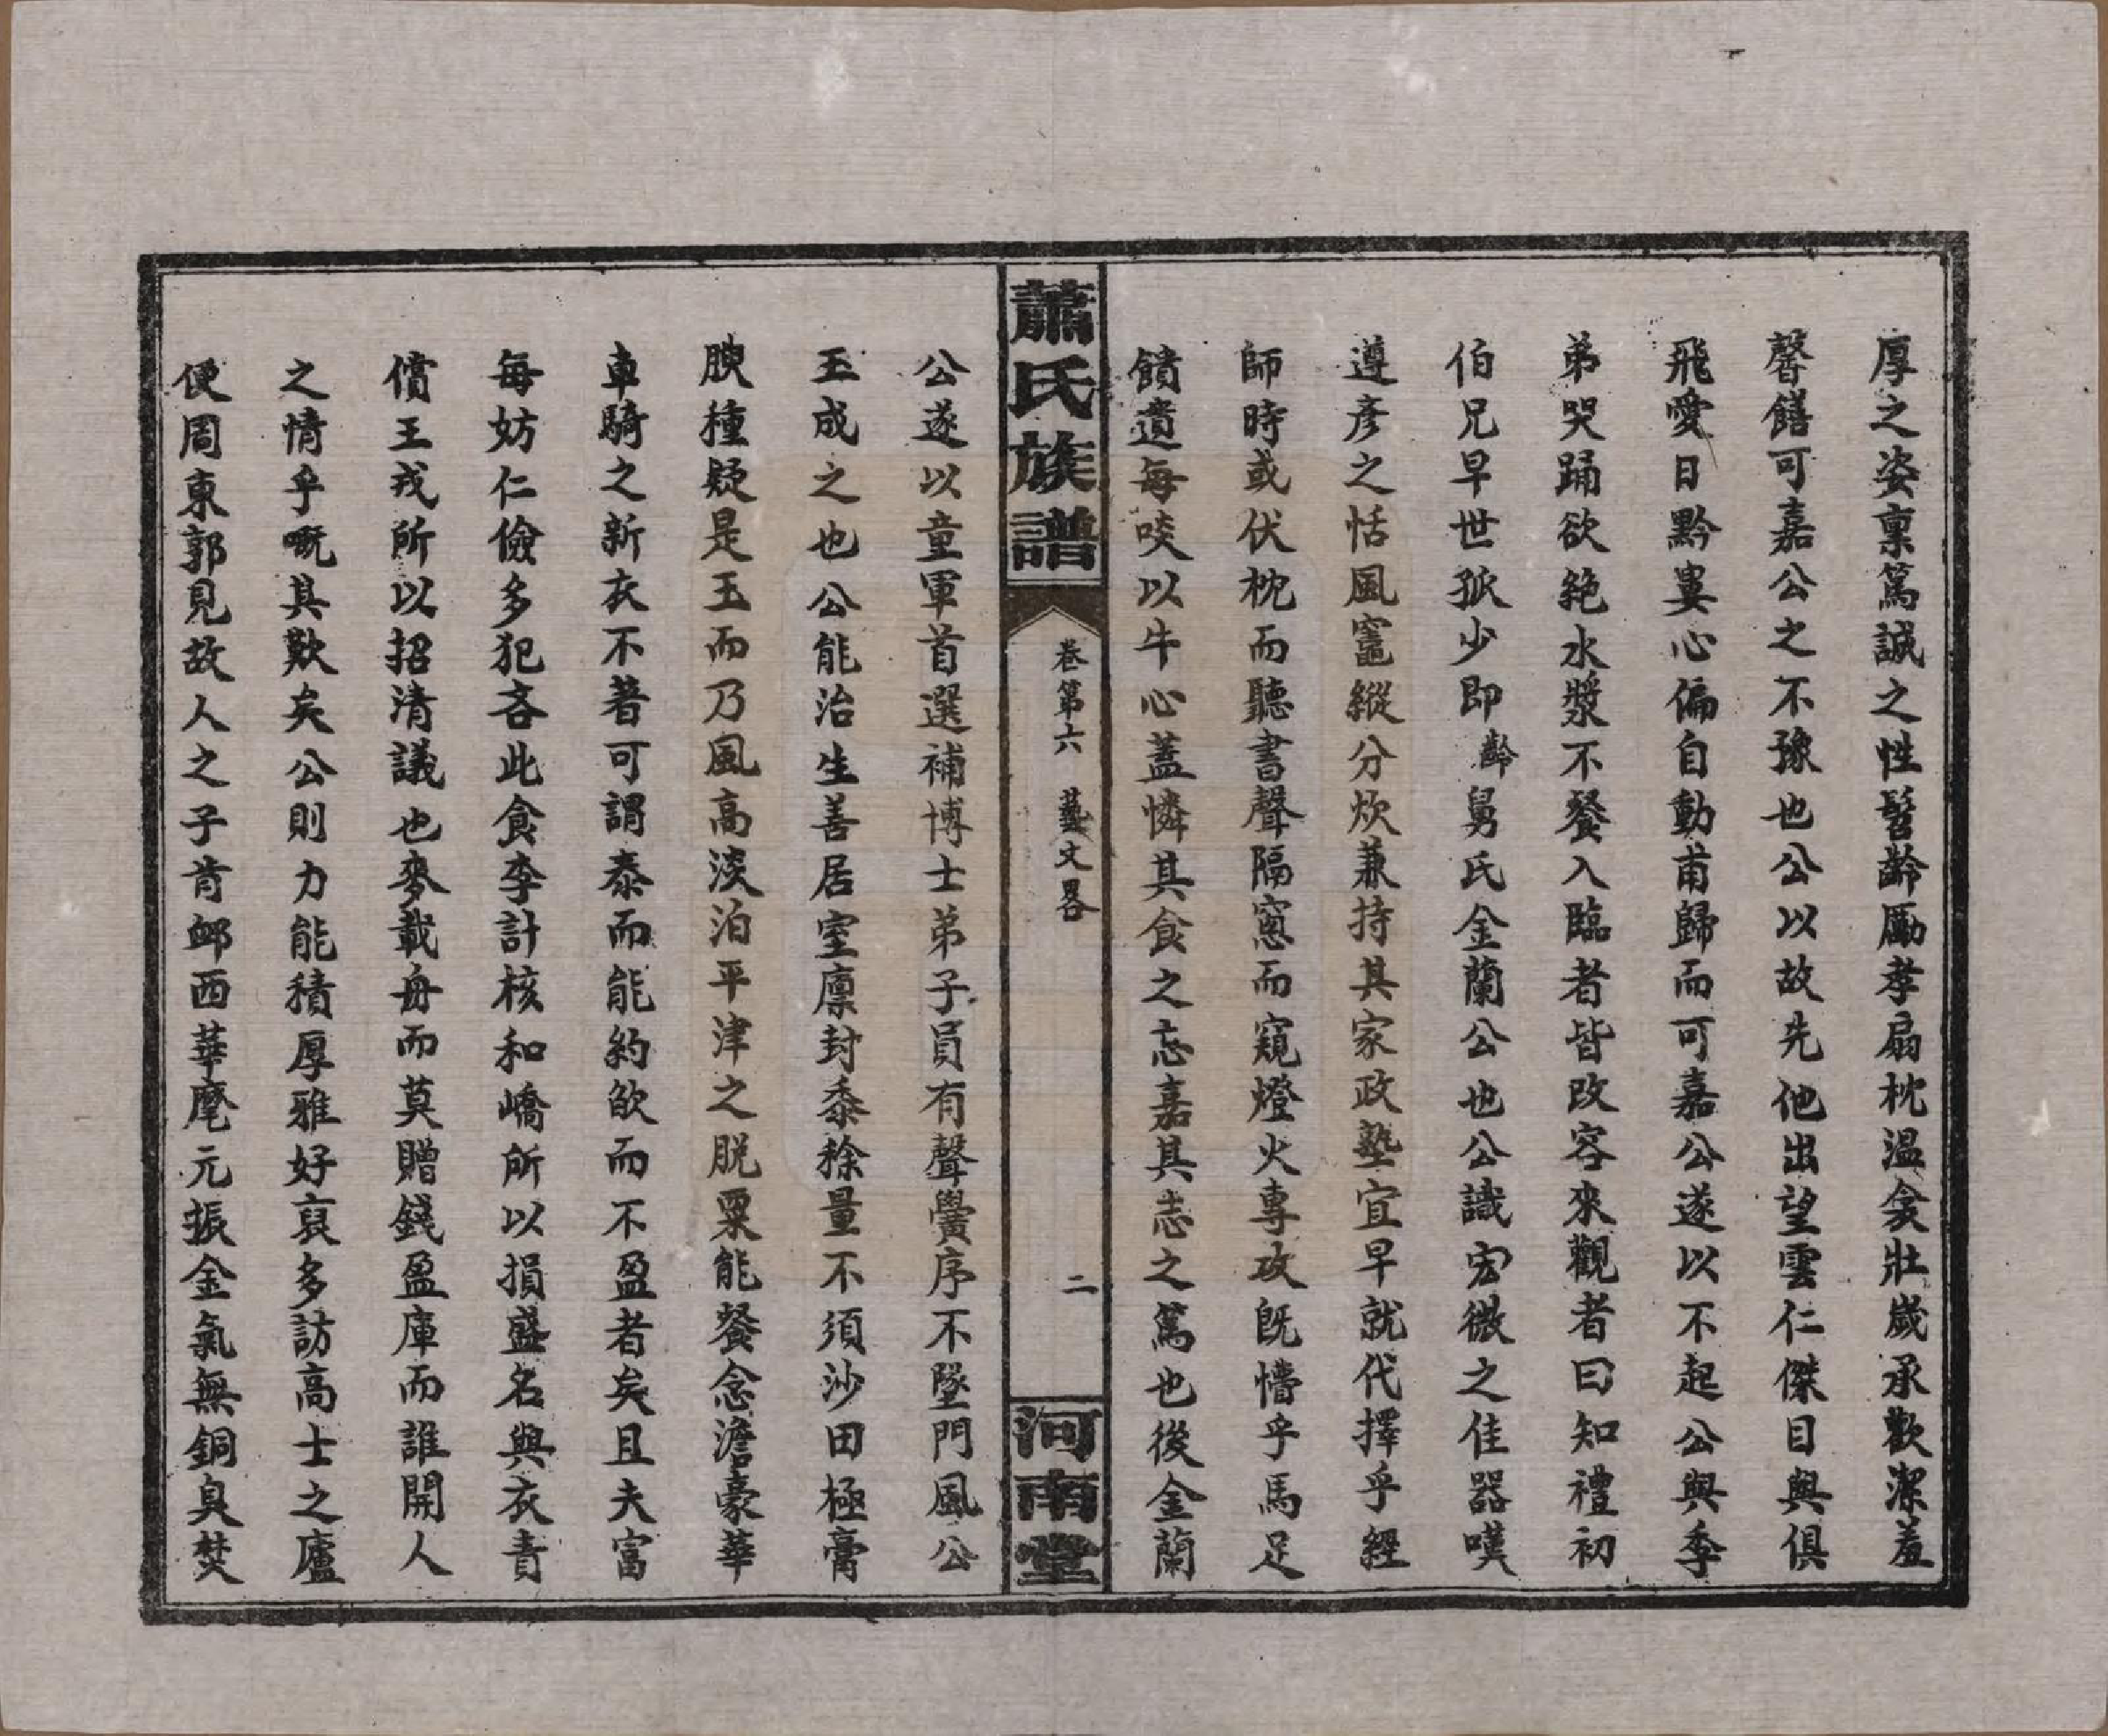 厚之姿稟篤誠之性髫齡勵孝扇枕溫衾壯歲承歡潔羞
馨饍可嘉公之不豫也公以故先他出望雲仁傑目與俱
飛愛日黔婁心偏自動甫歸而可嘉公遂以不起公與季
弟哭踊欲絶水漿不餐入臨者皆改容來觀者曰知禮初
伯兄早世孤少即齡舅氏金蘭公也公識宏微之佳器嘆
遵彦之恬風竈縱分炊兼持其家政塾宜早就代擇乎經
師時或伏枕而聽書聲隔窻而窺燈火專攻旣懵乎馬足
饋遺每啖以牛心蓋憐其食之忘嘉其志之篤也後金蘭
蕭氏族譜
卷第六 藝文畧
二
河南堂
公遂以童軍首選補博士弟子員有聲黌序不墜門風公
玉成之也公能治生善居室廪封黍稌量不須沙田極膏
腴種疑是玉而乃風高淡泊平津之脱粟能餐念澹豪華
車騎之新衣不著可謂泰而能約欿而不盈者矣且夫富
每妨仁儉多犯吝此食李計核和嶠所以損盛名與衣責
償王戎所以招清議也麥載舟而莫贈錢盈庫而誰開人
之情乎嘅其歎矣公則力能積厚雅好裒多訪高士之廬
便周東郭見故人之子肯郵西華麾元振金氣無銅臭焚